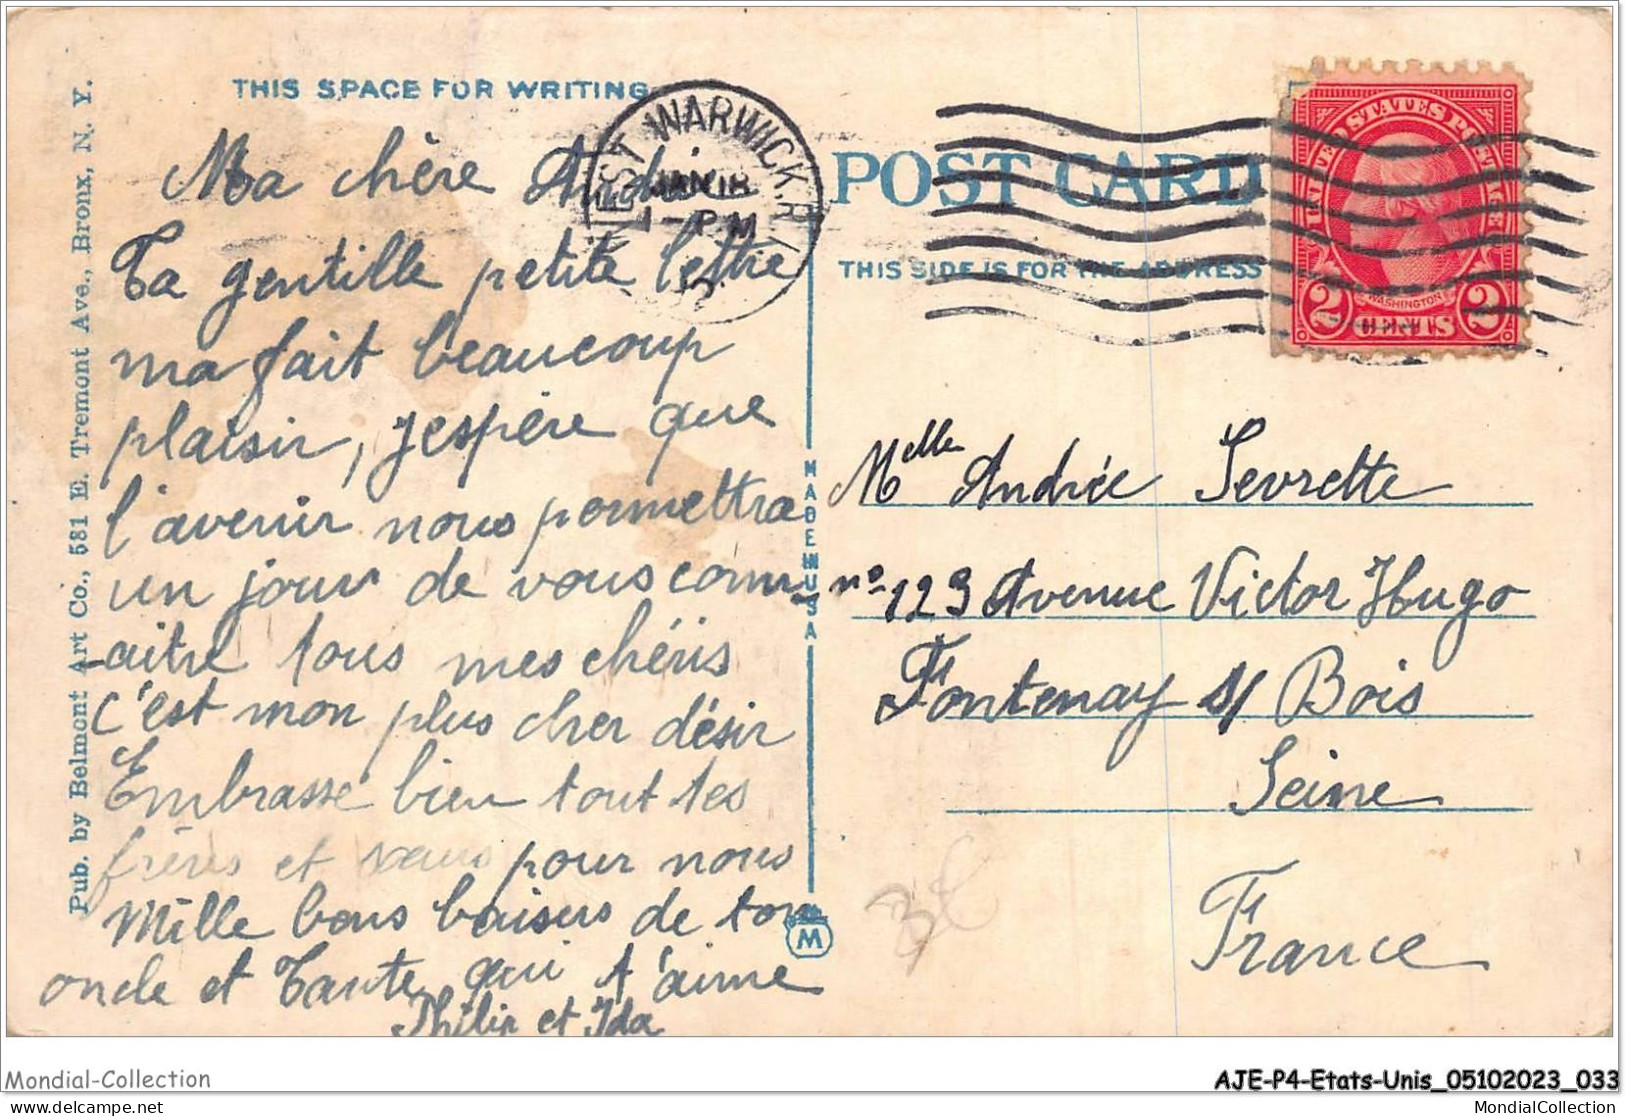 THIS SPACE FOR WRITING
Ma chère Andrée
Ta gentille petite lettre
ma fait beaucoup
plaisir, j'espère que
l'avenir nous permettra
un jour de vous conn-
-aitre tous mes chéris
c'est mon plus cher désir
Embrasse bien tout tes
frères et sœurs pour nous
Mille bons baisers de ton
oncle et Tante qui t'aime
Philip et Ida
Pub. by Belmont Art Co., 581 E. Tremont Ave., Bronx, N. Y.
WEST WARWICK. R.I.
JAN 18
1-PM
MADE IN USA
M
POST CARD
THIS SIDE IS FOR THE ADDRESS
UNITED STATES POSTAGE
WASHINGTON
2 CENTS 2
Melle Andrée Sevrette
no 123 Avenue Victor Hugo
Fontenay s/ Bois
Seine
France
Mondial-Collection
AJE-P4-Etats-Unis_05102023_033
delcampe.net
MondialCollection